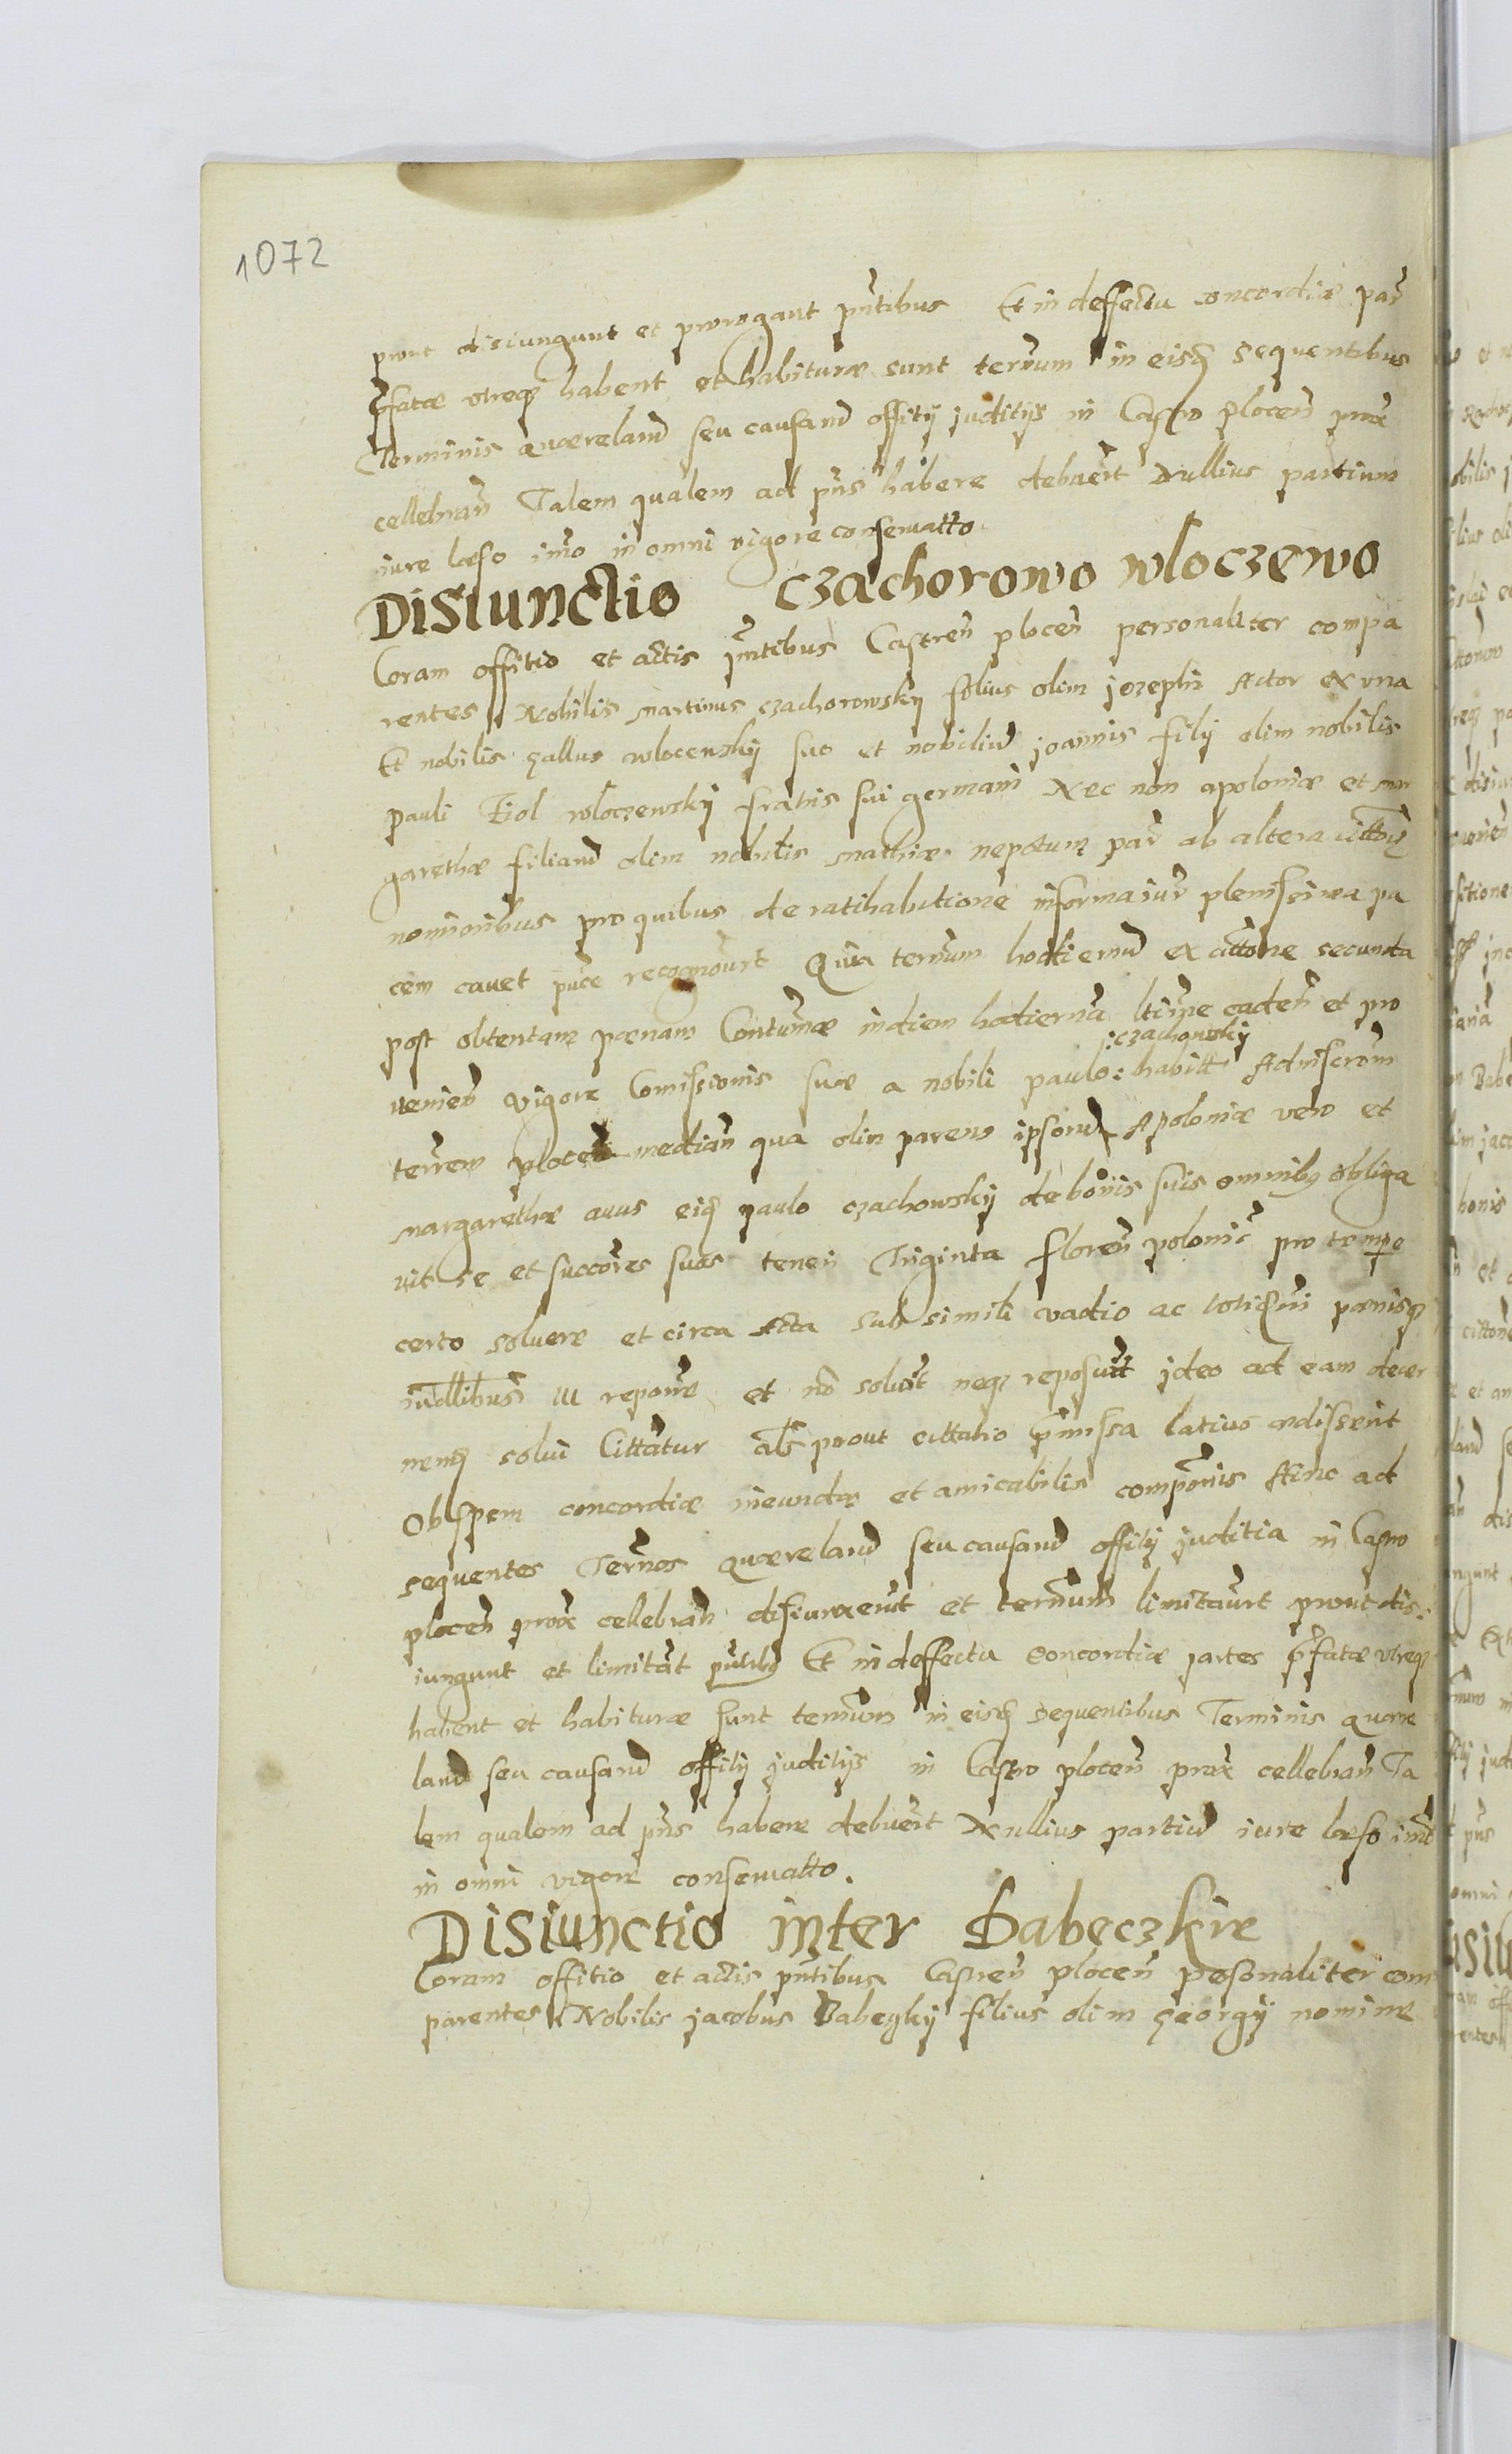 1072
prout disiungunt et prorogant pñtibus Et in deffectu concordiæ par̃
p̃fatæ utreq3 habent et habituræ sunt ter̃num in eisd̃ sequentibus
Terminis quæreland̃ seu causand̃ offitij juditijs in Castro plocen̄ prox̃
cellebran̄ Talem qualem ad pñs habere debuer̃t Nullius partium
iure læso im̄o in omni vigore conseruatto
Disiunctio Czachorowo Wloczewo
Coram offitio et actis pñtibus Castren̄ plocen̄ personaliter compa
rentes Nobilis Martinus czachorowskij filius olim jozephi Actor ex una
Et nobilis gallus wlocewskij suo et nobiliu̅ joannis filij olim nobilis
pauli Fiol wloczewskij fratris sui germani Nec non apoloniæ et mar
garethæ filiaru̅ olim nobilis mathiæ nepotum par̃ ab altera citto̅ꝝ
nominibus pro quibus de ratihabitione in forma iur̃ plenissima pa
cem cauet pñce recognour̃t Quia ter̃num hodiernu̅ ex citt̃one secunda
post obtentam pœnam Contum̃æ in diem hodiern̄a ltim̃e caden̄ et pro
uenien̄ vigore Comissionis suæ a nobili paulo :czachowskij: habitt Adnis
terrem plocen̄ median̄ qua olim parens ipsoru̅ Apoloniæ vero et
margarethæ auus eid̃ paulo czachowskij de bonis suis omnib3 obliga
uit se et succores suos teneri Triginta floren̄ polonic̃ pro tempe
certo soluere et circa Acta sub simili vadio ac pœnisq3
iudllibus III repon̄e et no̅ soluit neq3 reposuitt jdeo ad eam decer
nend̃ solui Cittatur als̃ prout cittatio p̃missa latius ædisserit
Ob spem concordiæ ineundæ et amicabilis compo̅nis Hinc ad
sequentes Ter̃nos quæreland̃ seu causand̃ offitij juditia in Castro
plocen̄ prox̃ cellebran̄ disiunxerūt et ter̃num limitaur̃t prout dis:
iungunt et limitãt pñtib3 Et in deffectu concordiæ partes p̃fatæ utreq3
habent et habituræ sunt ter̃num in eisd̃ sequentibus Terminis quære
land̃ seu causand̃ offitij juditijs in Castro plocen̄ prox̃ cellebran̄ Ta
lem qualem ad pñs habere debuer̃t Nullius partiu̅ iure læso imo̅
in omni vigore conseruatto.
Disiunctio inter Babeczkie
Coram offitio et actis pñtibus Castren̄ plocen̄ personaliter com
parentes Nobilis jacobus Babeczkij filius olim georgij nomine